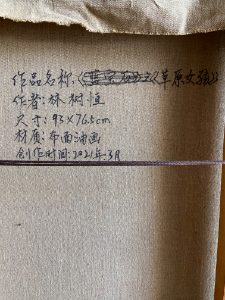 作品名称:《草原女孩》
作者:林树恒
尺寸:93×76.5cm
材质:布面油画
创作时间:2021年3月